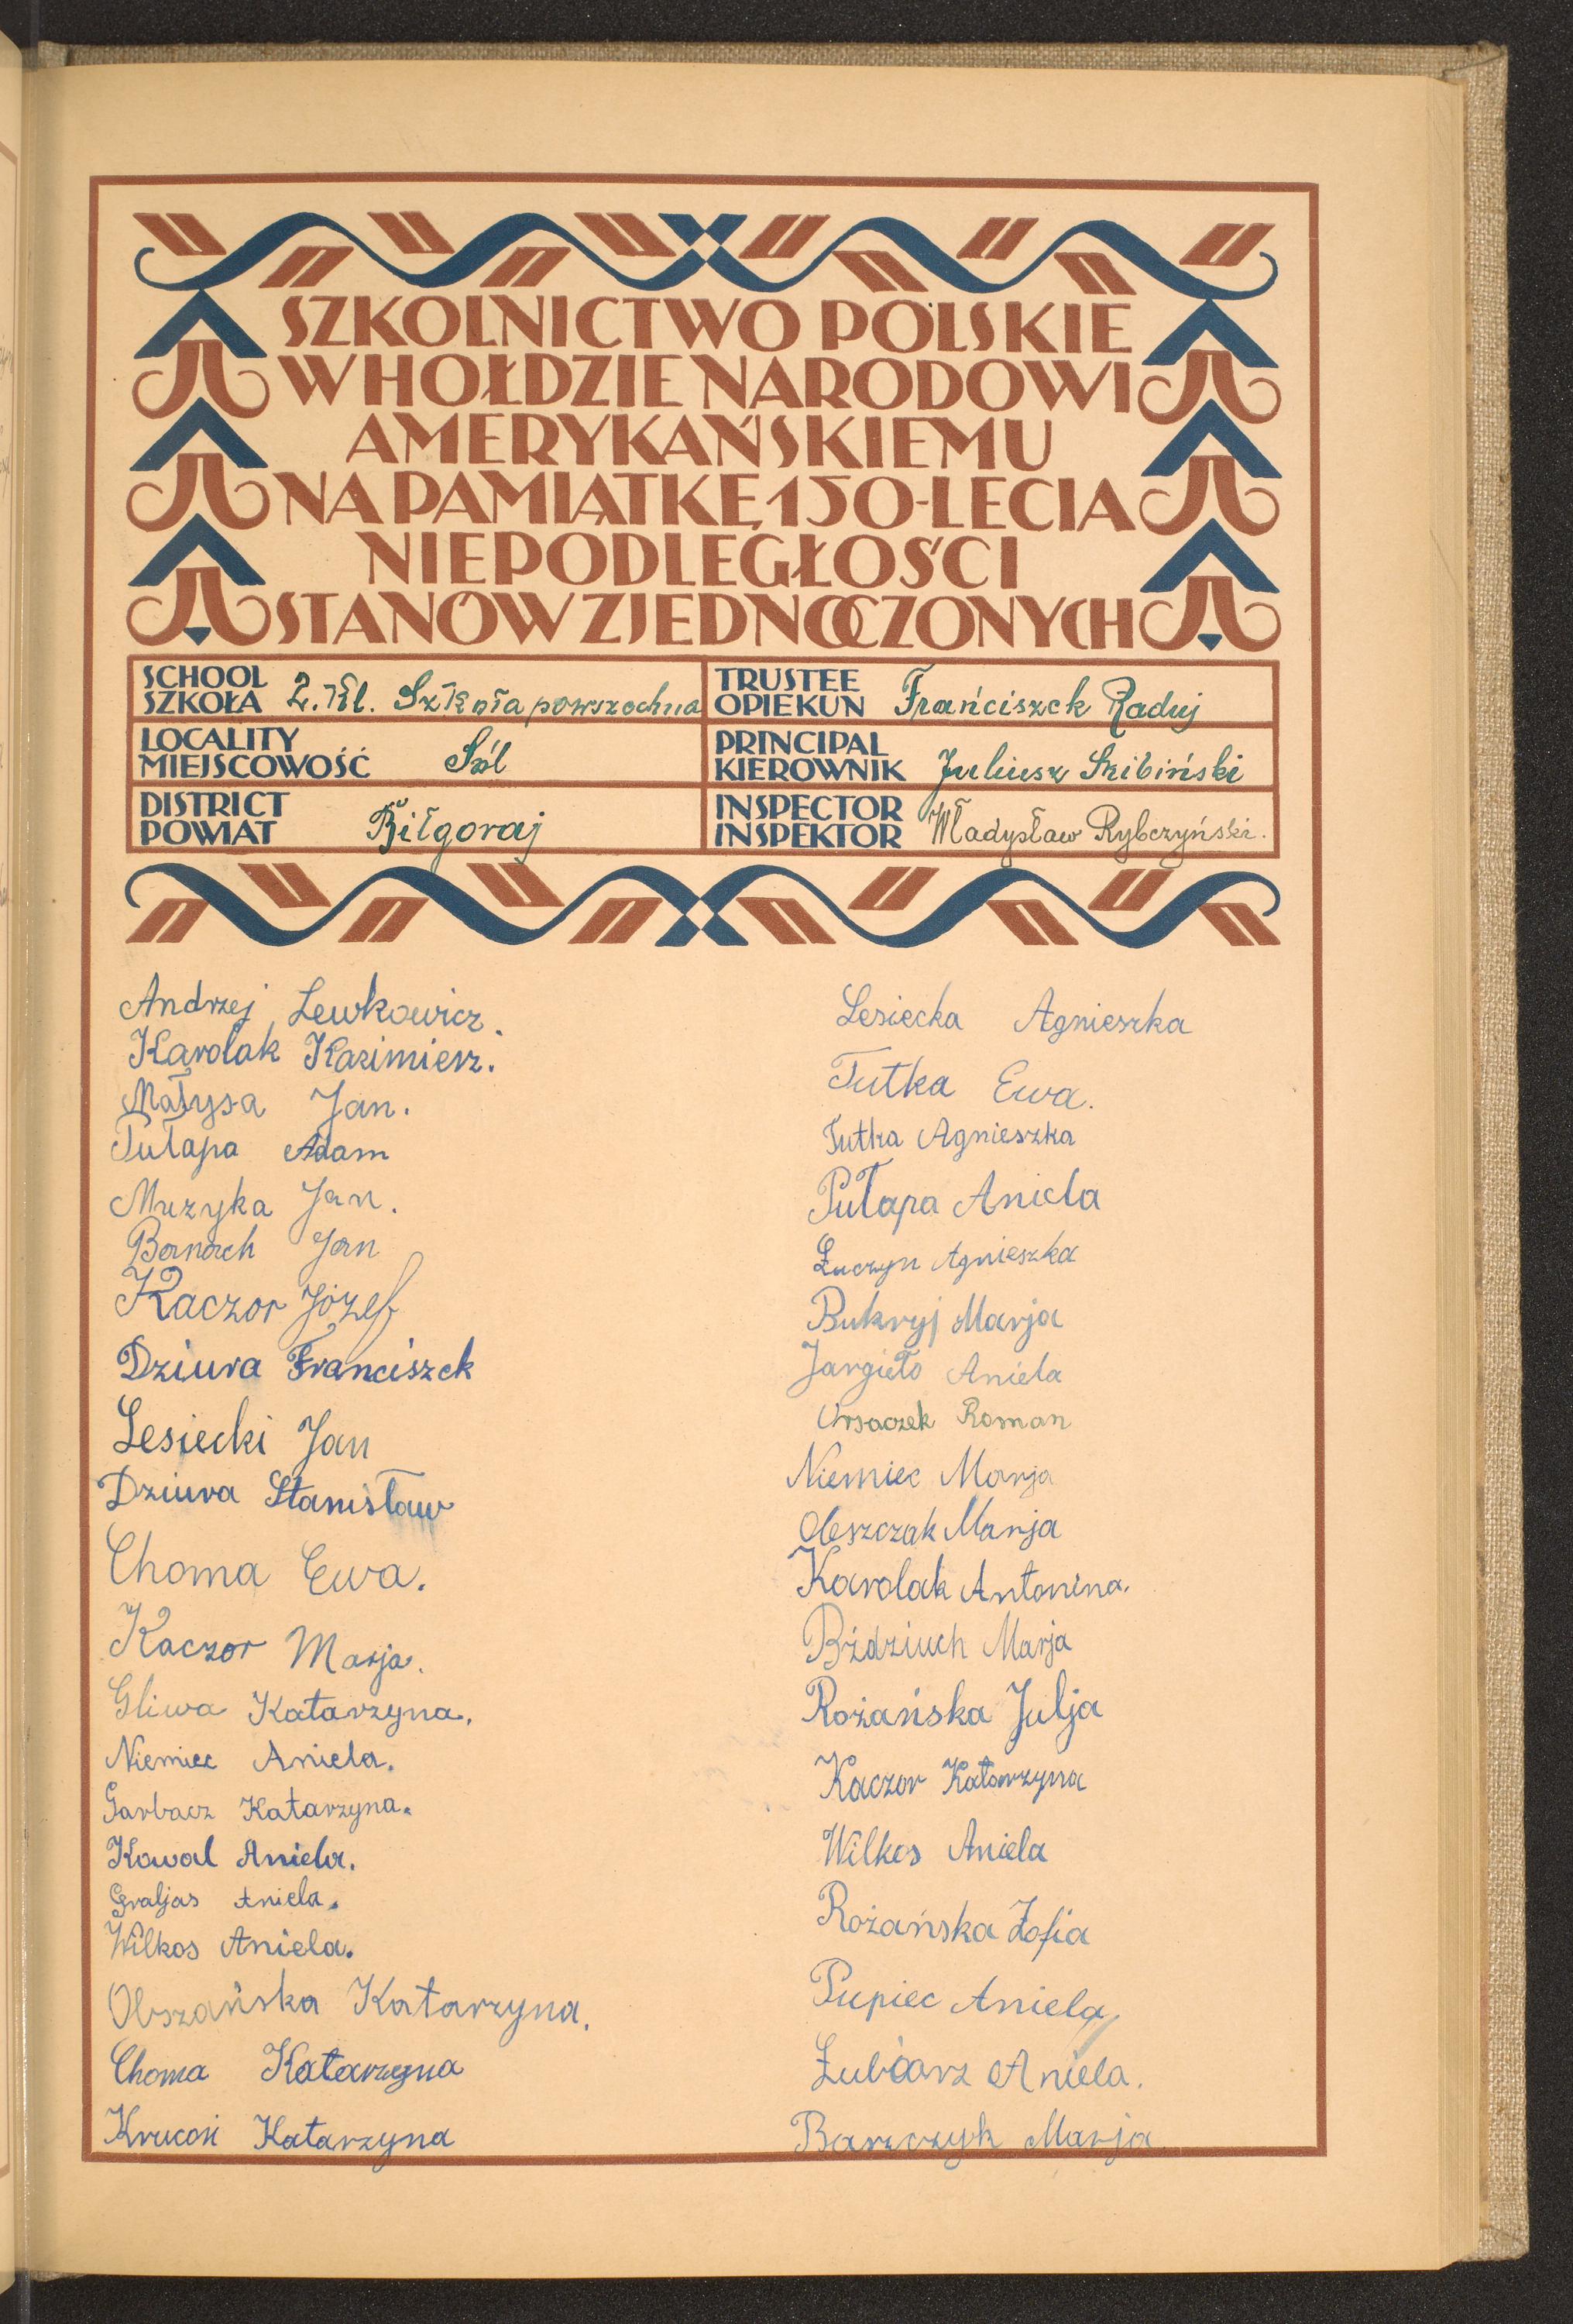 SZKOLNICTWO POLSKIE
W HOŁDZIE NARODOWI
AMERYKAŃSKIEMU
NA PAMIĄTKĘ 150-LECIA
NIEPODLEGŁOŚCI
STANÓW ZJEDNOCZONYCH
SCHOOL
SZKOŁA 2. Kl. Szkoła powszechna
TRUSTEE
OPIEKUN Frańciszek Raduj
LOCALITY
MIEJSCOWOŚĆ Sól
PRINCIPAL
KIEROWNIK Juliusz Skibiński
DISTRICT
POWIAT Biłgoraj
INSPECTOR
INSPEKTOR Władysław Rybczyński.
Andrzej Lewkowicz.
Karolak Kazimierz.
Małysa Jan.
Tutapa Adam
Muzyka Jan.
Banach Jan
Kaczor Józef
Dziura Franciszek
Lesiecki Jan
Dziura Stanisław
Choma Ewa.
Kaczor Marja.
Gliwa Katarzyna.
Niemiec Aniela.
Garbacz Katarzyna.
Kowal Aniela.
Graljas Aniela.
Wilkos Aniela.
Olszańska Katarzyna.
Choma Katarzyna
Katarzyna
Lesiecka Agnieszka
Tutka Ewa.
Tutka Agnieszka
Pułapa Aniela
Łuczyn Agnieszka
Bukryj Marja
Jargieło Aniela
Roman
Niemiec Marja
Oleszczak Marja
Karolak Antonina.
Bździuch Marja
Rożańska Julja
Kaczor Katarzyna
Wilkos Aniela
Rożańska Zofia
Pupiec Aniela
Łubiarz Aniela.
Marja